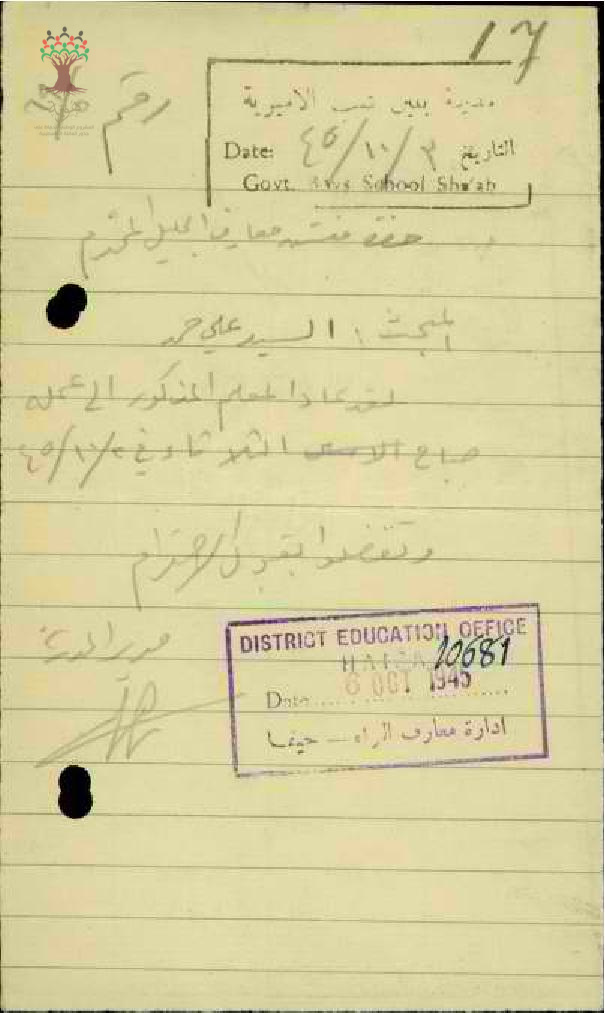 17
رقم
مديرة بنين شعب الاميرية
Date: ٤٥/١٠/٣ التاريخ
Govt. Boys School Sha'ab
حضرة مفتش معارف الجليل المحترم
المبحث: السيد علي حمد
لقد عاد المعلم المذكور الى عمله
صباح الامس الثلاثاء في ٤٥/١٠/٢
وتفضلوا بقبول الاحترام
مدير المدرسة
DISTRICT EDUCATION OFFICE
HAIFA 10681
Date 6 OCT 1945
ادارة معارف اللواء — حيفا